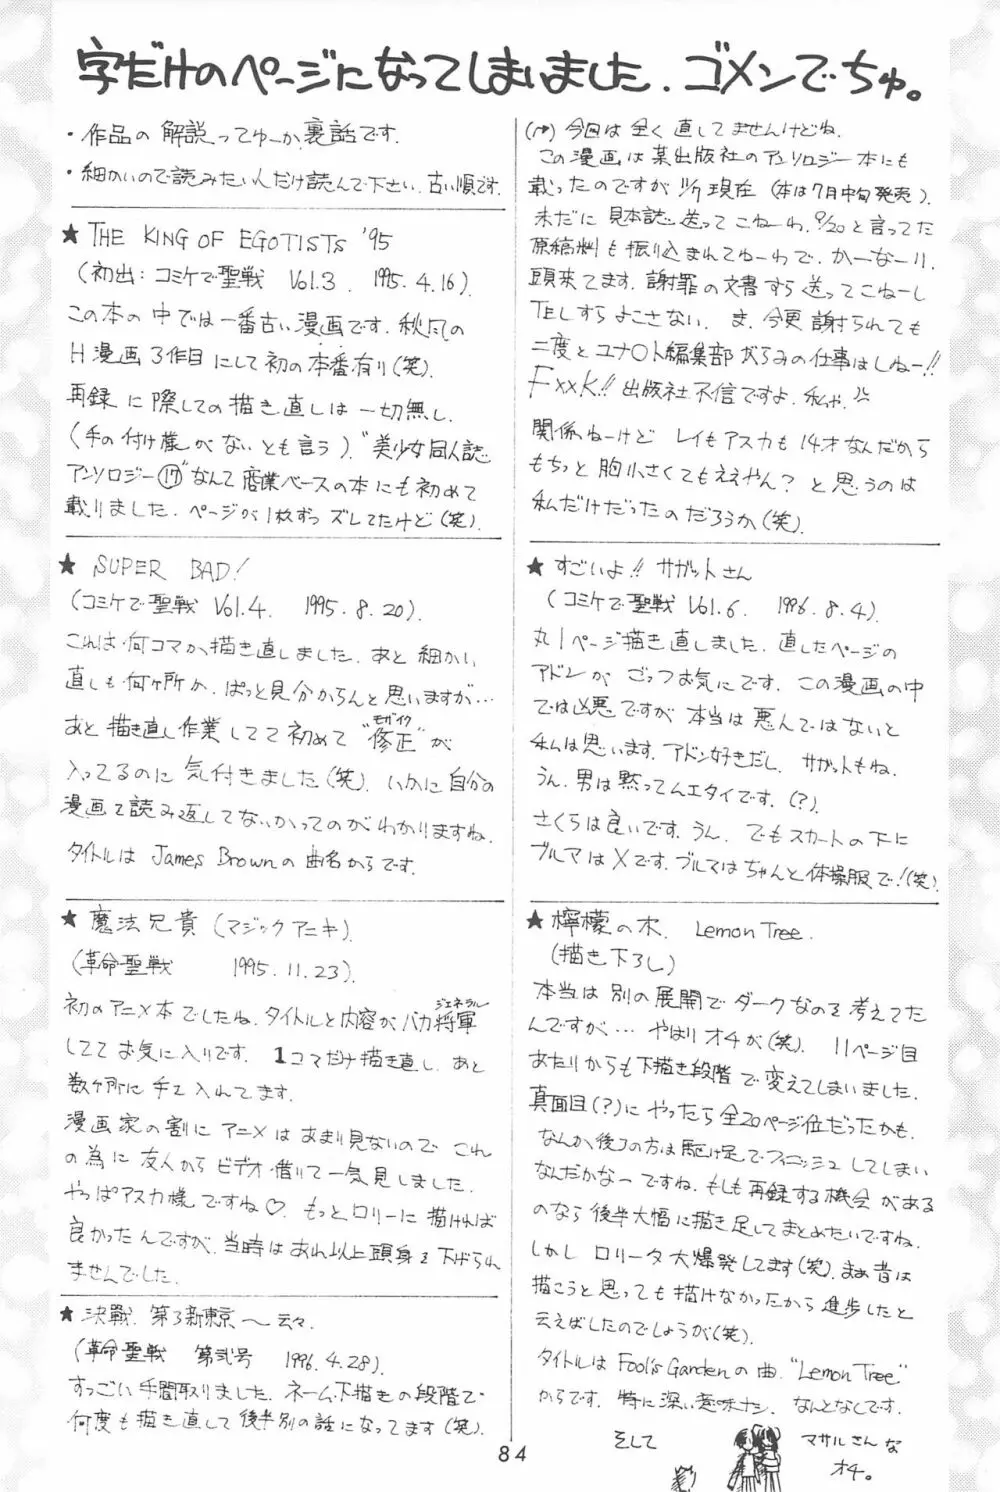 字だけのページになってしまいました.ゴメンでちゅ。
・作品の解説ってゆーか、裏話です.
・細かいので読みたい人だけ読んで下さい.古い順です.
★ THE KING OF EGOTISTS '95
(初出:コミケで聖戦 Vol.3. 1995.4.16).
この本の中では一番古い漫画です.秋風の
H漫画3作目にして初の本番有り(笑).
再録に際しての描き直しは一切無し.
(手の付け様がないとも言う)"美少女同人誌
アンソロジー⑰"なんて商業ベースの本にも初めて
載りました.ページが1枚ずつズレてたけど(笑).
★ SUPER BAD!
(コミケで聖戦 Vol.4. 1995.8.20)
これは何コマか描き直しました.あと細かい
直しも何ヶ所か.ぱっと見分からんと思いますが…
あと描き直し作業してて初めて"修正"が
モザイク
入ってるのに気付きました(笑).いかに自分の
漫画を読み返してないかってのがわかりますね.
タイトルは James Brownの曲名からです.
★ 魔法兄貴(マジックアニキ).
(革命聖戦 1995.11.23).
初のアニメ本でしたね.タイトルと内容がバカ将軍
ジェネラル
してて お気に入りです. 1コマだけ描き直し.あと
数ヶ所に手を入れてます.
漫画家の割にアニメはあまり見ないので これ
の為に友人からビデオ借りて一気見しました.
やっぱアスカ様ですね♡.もっとロリーに描ければ
良かったんですが、当時はあれ以上頭身を下げられ
ませんでした.
★ 決戦、第3新東京〜云々.
(革命聖戦 第弐号 1996.4.28).
すっごい手間取りました.ネーム、下描きの段階で
何度も描き直して後半別の話になってます(笑).
今回は全く直してませんけどね.
この漫画は某出版社のアンソロジー本にも
載ったのですが 現在(本は7月中旬発売).
未だに見本誌送ってこねーわ、 /20と言ってた
原稿料も振り込まれてねーわで、かーなーり、
頭来てます.謝罪の文書すら送ってこねーし
TELすらよこさない. ま、今更謝られても
二度とユナ〇ト編集部がらみの仕事はしねー!!
FxxK!! 出版社不信ですよ.私ゃ.
関係ねーけど レイもアスカも14才なんだから
もちっと胸小さくてもええやん? と思うのは
私だけだったのだろうか(笑).
★ すごいよ!! サガットさん
(コミケで聖戦 Vol.6. 1996.8.4).
丸1ページ描き直しました.直したページの
アドンが ごっつお気にです.この漫画の中
では凶悪ですが本当は悪人ではないと
私は思います.アドン好きだし.サガットもね.
うん.男は黙ってムエタイです.(?).
さくらは良いです.うん. でもスカートの下に
ブルマは×です.ブルマはちゃんと体操服で!(笑).
★ 檸檬の木. Lemon Tree.
(描き下ろし)
本当は別の展開でダークなのを考えてた
んですが… やはりオチが(笑). 11ページ目
あたりからも下描き段階で変えてしまいました.
真面目(?)にやったら全20ページ位だったかも.
なんか後ろの方は駆け足でフィニッシュしてしまい
なんだかなーですね.もしも再録する機会がある
のなら後半大幅に描き足してまとめたいですね.
しかし ロリータ大爆発してます(笑).まぁ昔は
描こうと思っても描けなかったから進歩したと
云えばしたのでしょうが(笑).
タイトルは Fool's Gardenの曲 "Lemon Tree"
からです. 特に深い意味ナシ. なんとなしです.
そして
マサルさんな
オチ。
84